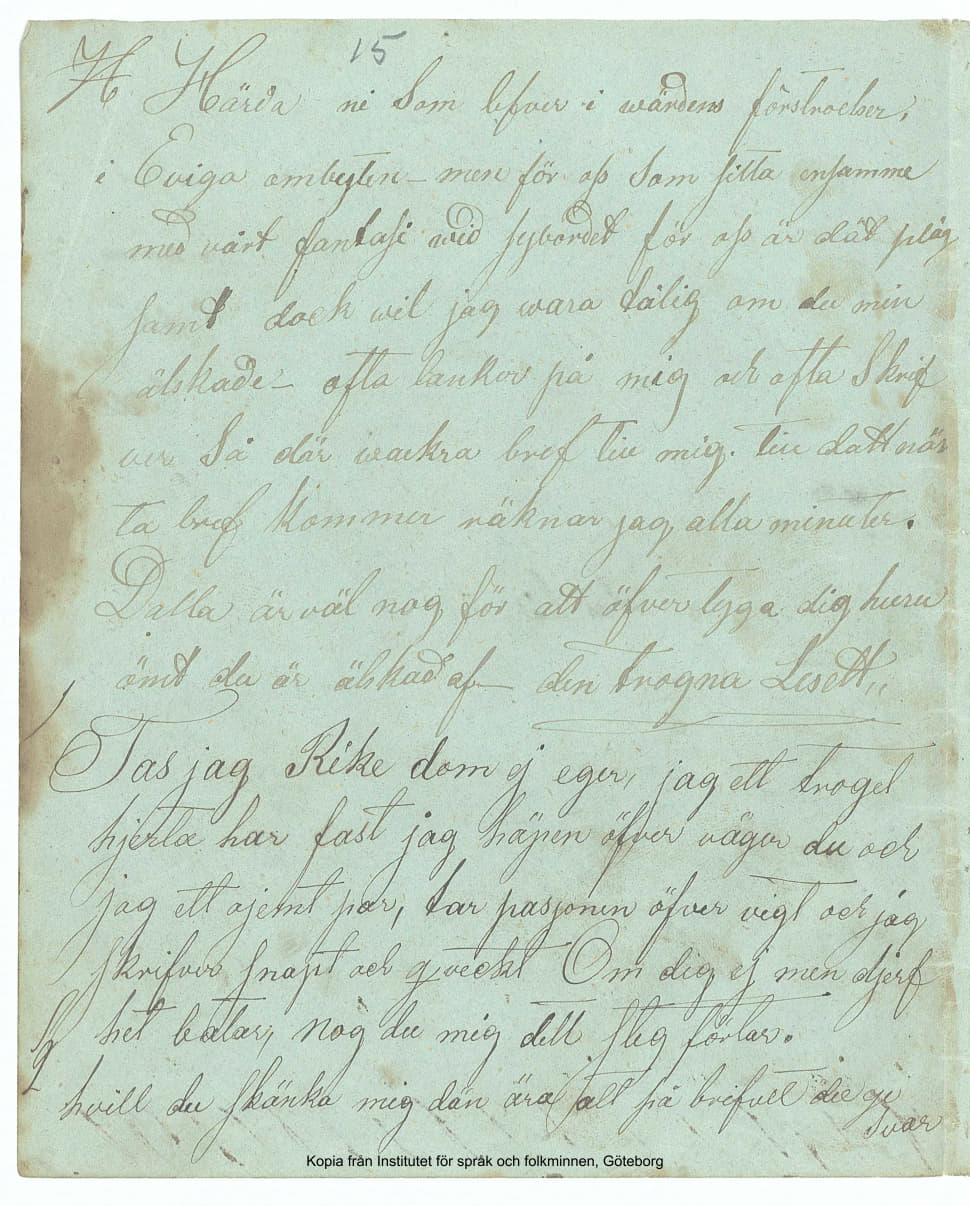 15
H Härda ni som lefver i wärdens förstroelser,
i Eviga ombyten – men för oss som sitta ensamme
med vårt fantasi wid sybordet för oss är dät plåg
samt dock wil jag wara tålig om du min
älskade – ofta tänker på mig och ofta skrif
ver så där wackra bref till mig. till datt när
ta bref kommer räknar jag alla minuter.
Dalla är väl nog för att öfver tyga dig huru
ömt du är älskad af – den trogna Lisett,,
Tas jag Rike dom ej eger, jag ett troget
hjerta har fast jag häpen öfver väger du och
jag ett ojemt par, tar pasjonen öfver vigt och jag
skrifver snapt och qveckt Om dig ej men djerf
het låtar, nog du mig dett steg förlår.
hvill du skänka mig dän ära att på brifvet die ge
svar
Kopia från Institutet för språk och folkminnen, Göteborg